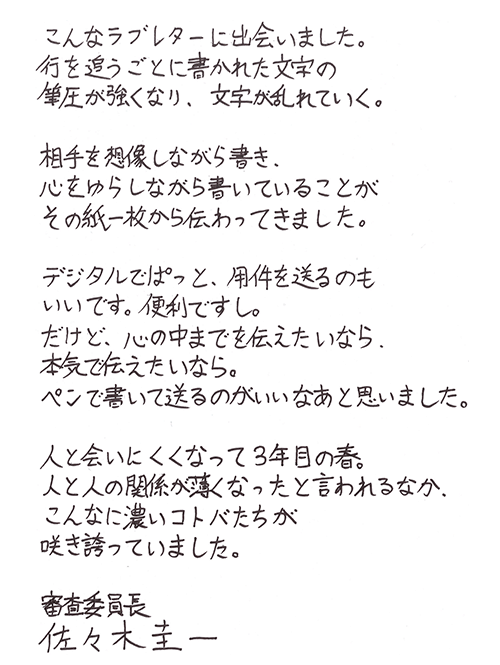 こんなラブレターに出会いました。
行を追うごとに書かれた文字の
筆圧が強くなり、文字が乱れていく。
相手を想像しながら書き、
心をゆらしながら書いていることが
その紙一枚から伝わってきました。
デジタルでぱっと、用件を送るのも
いいです。便利ですし。
だけど、心の中までを伝えたいなら、
本気で伝えたいなら。
ペンで書いて送るのがいいなあと思いました。
人と会いにくくなって3年目の春。
人と人の関係が薄くなったと言われるなか、
こんなに濃いコトバたちが
咲き誇っていました。
審査委員長
佐々木圭一